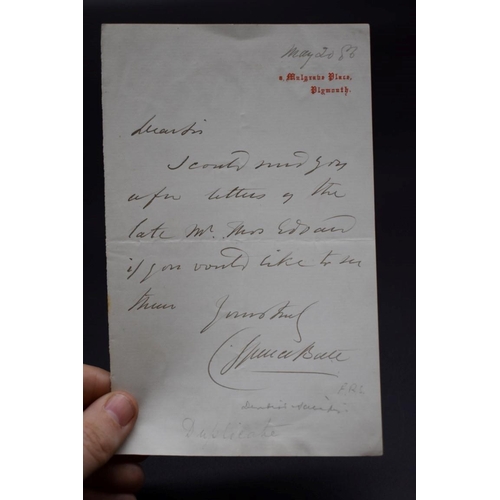 May 20 86
8 Mulgrave Place,
Plymouth.
Dear Sir
I could send you
a few letters of the
late Mr. Thos Edward
if you would like to see
them
Yours truly
C Spence Bate
F.R.S.
Dentist &
Duplicate